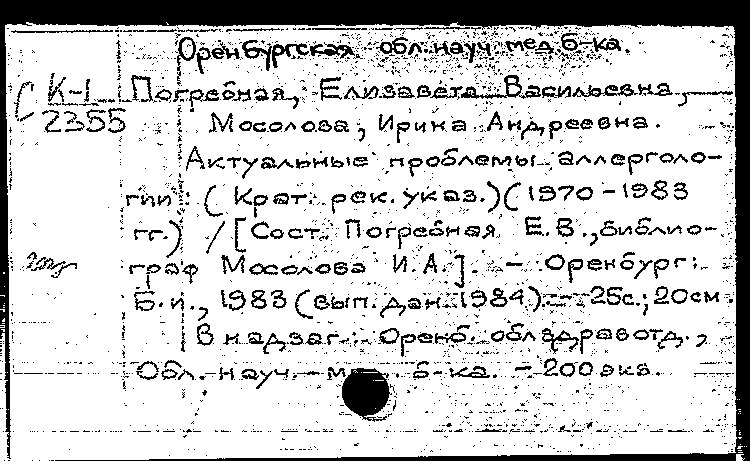 Оренбургская обл. науч. мед. б-ка.
К-1 Погребная, Елизавета Васильевна,
2355 Мосолова, Ирина Андреевна.
Актуальные проблемы аллерголо-
гии: (Крат. рек. указ.) (1970-1983
гг.) / [Сост. Погребная Е.В., библио-
граф Мосолова И.А.]. - Оренбург:
Б.и., 1983 (вып. дан. 1984). - 25с.; 20см.
В надзаг.: Оренб. облздравотд.,
Обл. науч. - б-ка. - 200 экз.